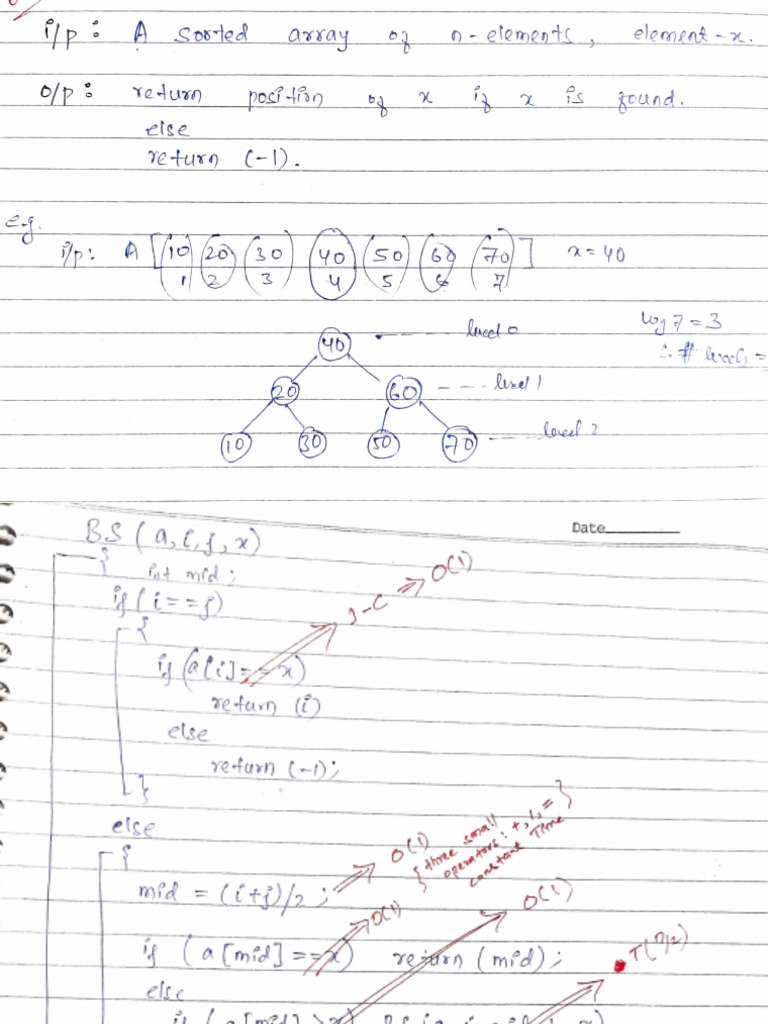 i/p : A sorted array of n-elements, element-x.
o/p : return position of x if x is found.
else
return (-1).
e.g.
i/p: A [10 20 30 40 50 60 70] x = 40
1 2 3 4 5 6 7
40 level 0
log 7 = 3
∴ # levels =
20 60 level 1
10 30 50 70 level 2
Date
B.S (a, i, j, x)
{
int mid ;
if (i == j)
1-C ⇒ O(1)
{
if (a[i] == x)
return (i)
else
return (-1);
}
else
{
mid = (i+j)/2 ; O(1)
{three small
operators: +, /, =}
constant Time
O(1)
O(1)
if (a[mid] == x) return (mid) ;
T(n/2)
else
if (a[mid] > x)